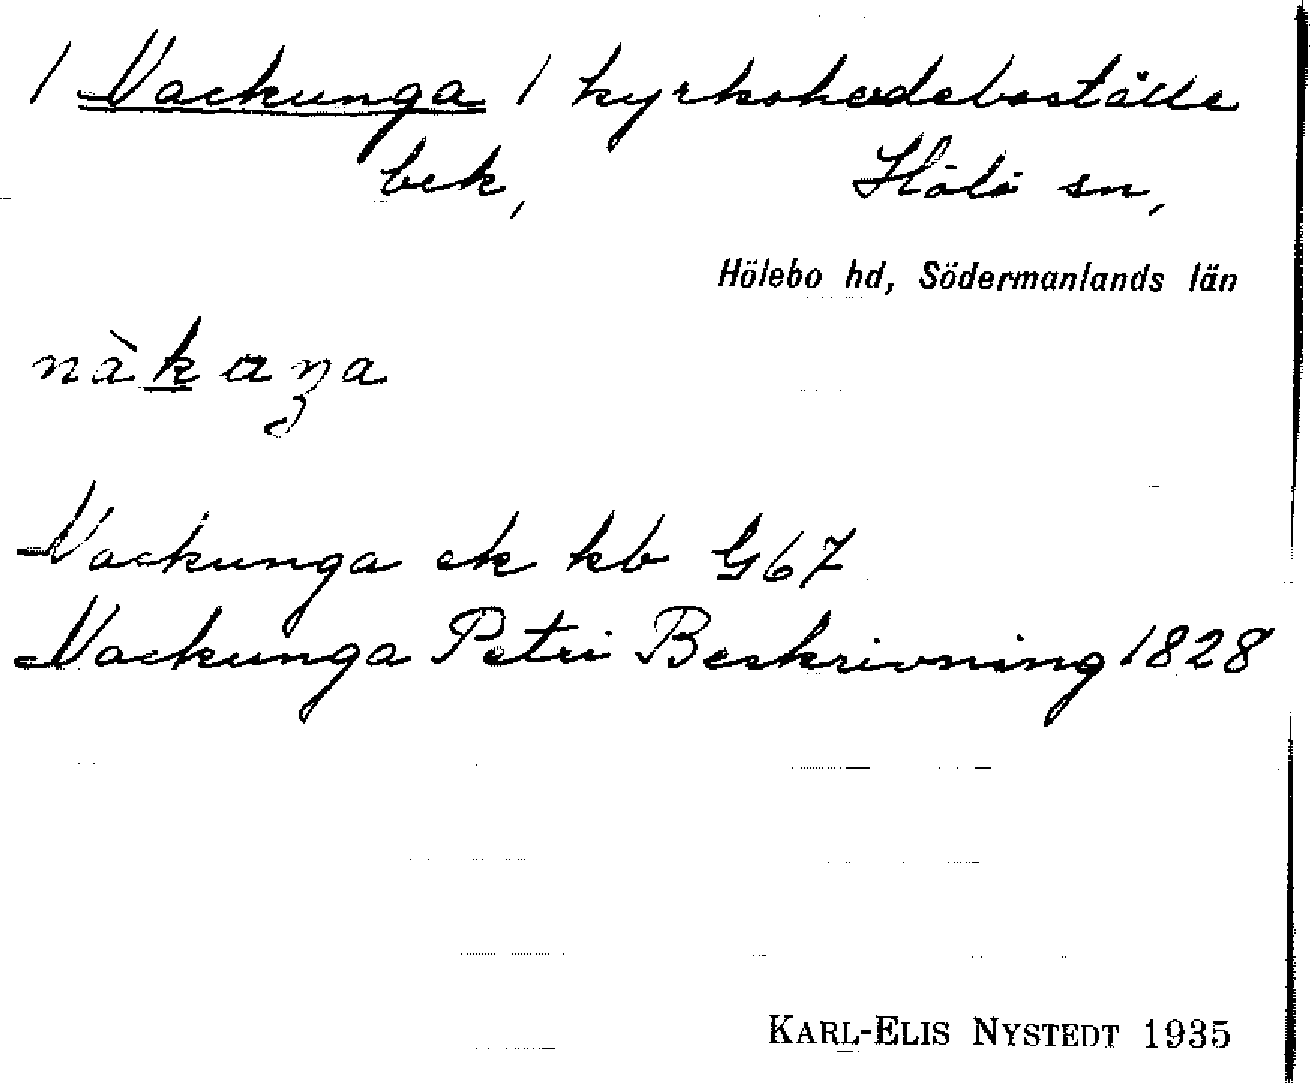 / Nackunga / kyrkoherdeboställe
bek, Hölö sn,
Hölebo hd, Södermanlands län
nàkaŋa
Nackunga ek kb G67
Nackunga Petri Beskrivning 1828
KARL-ELIS NYSTEDT 1935